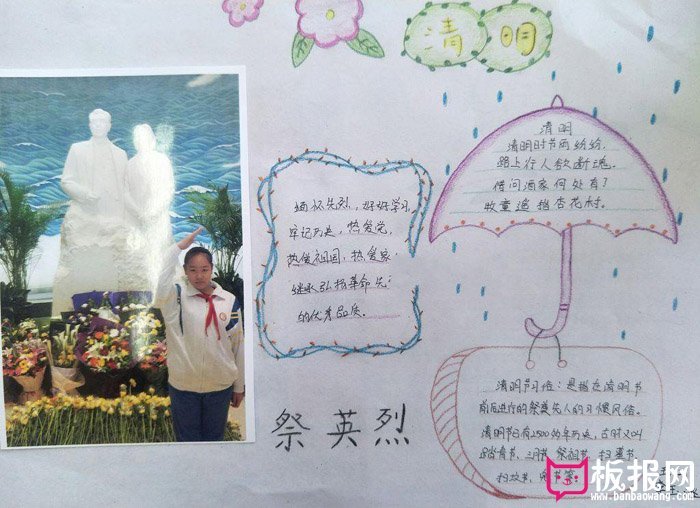 清明
清明
清明时节雨纷纷,
路上行人欲断魂。
借问酒家何处有?
牧童遥指杏花村。
缅怀先烈,好好学习,
牢记历史,热爱党,
热爱祖国,热爱家,
继承弘扬革命先
的优秀品质。
祭英烈
清明节习俗:是指在清明节
前后进行的祭奠先人的习惯风俗。
清明节已有2500的年历史,古时又叫
踏青节、三月节、祭祖节、扫墓节、
扫坟节、鬼节等。
板报网
www.banbaowang.com